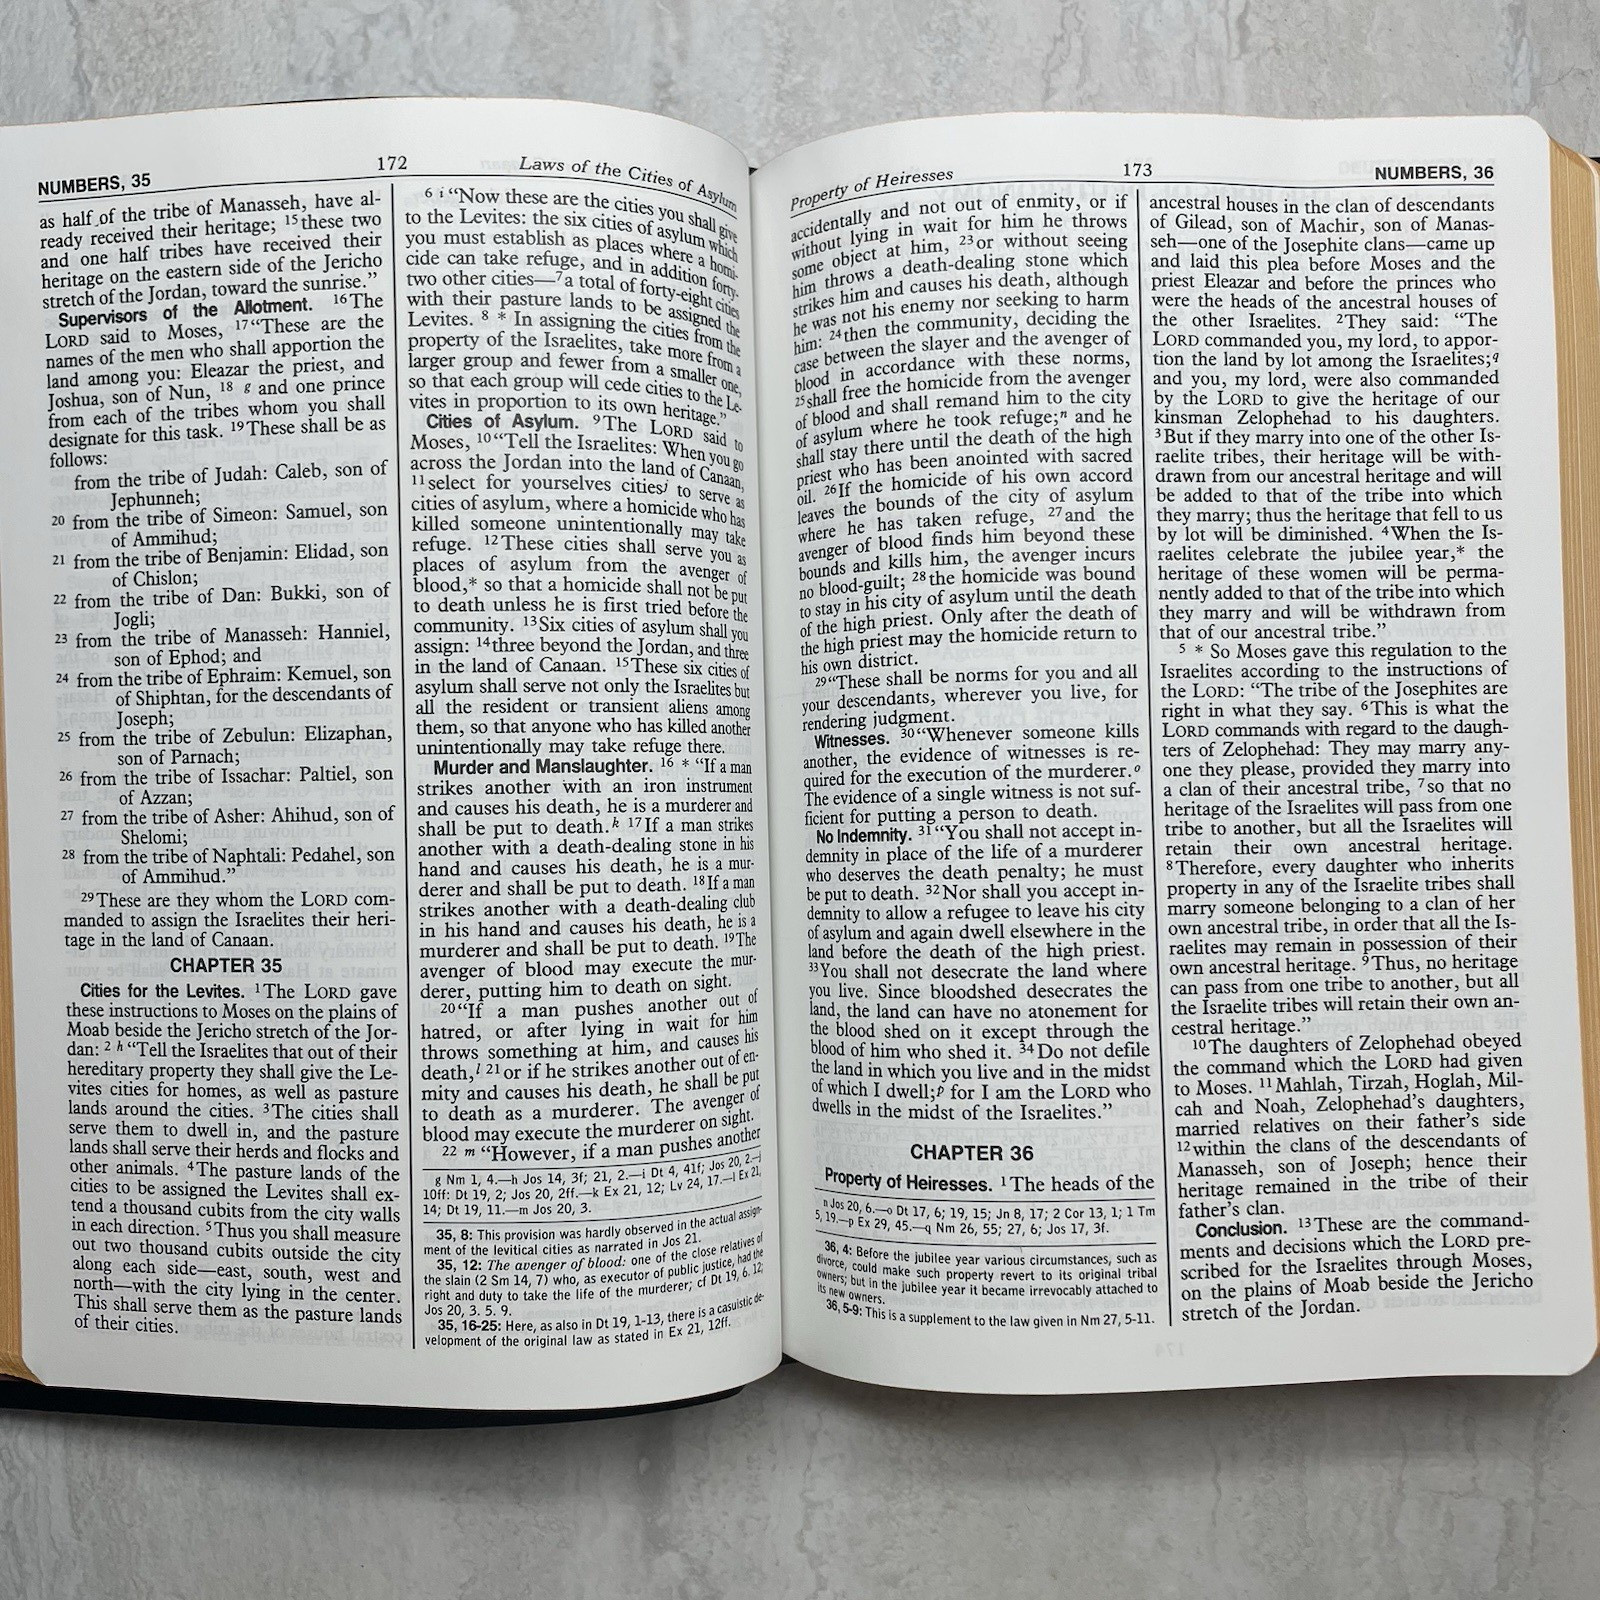 NUMBERS, 35
172
Laws of the Cities of Asylum
as half of the tribe of Manasseh, have al-
ready received their heritage; 15 these two
and one half tribes have received their
heritage on the eastern side of the Jericho
stretch of the Jordan, toward the sunrise.”
Supervisors of the Allotment. 16 The
LORD said to Moses, 17 “These are the
names of the men who shall apportion the
land among you: Eleazar the priest, and
Joshua, son of Nun, 18 g and one prince
from each of the tribes whom you shall
designate for this task. 19 These shall be as
follows:
from the tribe of Judah: Caleb, son of
Jephunneh;
20 from the tribe of Simeon: Samuel, son
of Ammihud;
21 from the tribe of Benjamin: Elidad, son
of Chislon;
22 from the tribe of Dan: Bukki, son of
Jogli;
23 from the tribe of Manasseh: Hanniel,
son of Ephod; and
24 from the tribe of Ephraim: Kemuel, son
of Shiphtan, for the descendants of
Joseph;
25 from the tribe of Zebulun: Elizaphan,
son of Parnach;
26 from the tribe of Issachar: Paltiel, son
of Azzan;
27 from the tribe of Asher: Ahihud, son of
Shelomi;
28 from the tribe of Naphtali: Pedahel, son
of Ammihud.”
29 These are they whom the LORD com-
manded to assign the Israelites their heri-
tage in the land of Canaan.
CHAPTER 35
Cities for the Levites. 1 The LORD gave
these instructions to Moses on the plains of
Moab beside the Jericho stretch of the Jor-
dan: 2 h “Tell the Israelites that out of their
hereditary property they shall give the Le-
vites cities for homes, as well as pasture
lands around the cities. 3 The cities shall
serve them to dwell in, and the pasture
lands shall serve their herds and flocks and
other animals. 4 The pasture lands of the
cities to be assigned the Levites shall ex-
tend a thousand cubits from the city walls
in each direction. 5 Thus you shall measure
out two thousand cubits outside the city
along each side—east, south, west and
north—with the city lying in the center.
This shall serve them as the pasture lands
of their cities.
6 i “Now these are the cities you shall give
to the Levites: the six cities of asylum which
you must establish as places where a homi-
cide can take refuge, and in addition forty-
two other cities—7 a total of forty-eight cities
with their pasture lands to be assigned the
Levites. 8 * In assigning the cities from the
property of the Israelites, take more from a
larger group and fewer from a smaller one,
so that each group will cede cities to the Le-
vites in proportion to its own heritage.”
Cities of Asylum. 9 The LORD said to
Moses, 10 “Tell the Israelites: When you go
across the Jordan into the land of Canaan,
11 select for yourselves cities j to serve as
cities of asylum, where a homicide who has
killed someone unintentionally may take
refuge. 12 These cities shall serve you as
places of asylum from the avenger of
blood,* so that a homicide shall not be put
to death unless he is first tried before the
community. 13 Six cities of asylum shall you
assign: 14 three beyond the Jordan, and three
in the land of Canaan. 15 These six cities of
asylum shall serve not only the Israelites but
all the resident or transient aliens among
them, so that anyone who has killed another
unintentionally may take refuge there.
Murder and Manslaughter. 16 * “If a man
strikes another with an iron instrument
and causes his death, he is a murderer and
shall be put to death. k 17 If a man strikes
another with a death-dealing stone in his
hand and causes his death, he is a mur-
derer and shall be put to death. 18 If a man
strikes another with a death-dealing club
in his hand and causes his death, he is a
murderer and shall be put to death. 19 The
avenger of blood may execute the mur-
derer, putting him to death on sight.
20 “If a man pushes another out of
hatred, or after lying in wait for him
throws something at him, and causes his
death, l 21 or if he strikes another out of en-
mity and causes his death, he shall be put
to death as a murderer. The avenger of
blood may execute the murderer on sight.
22 m “However, if a man pushes another
g Nm 1, 4.—h Jos 14, 3f; 21, 2.—i Dt 4, 41f; Jos 20, 2.—j
10ff: Dt 19, 2; Jos 20, 2ff.—k Ex 21, 12; Lv 24, 17.—l Ex 21,
14; Dt 19, 11.—m Jos 20, 3.
35, 8: This provision was hardly observed in the actual assign-
ment of the levitical cities as narrated in Jos 21.
35, 12: The avenger of blood: one of the close relatives of
the slain (2 Sm 14, 7) who, as executor of public justice, had the
right and duty to take the life of the murderer; cf Dt 19, 6. 12;
Jos 20, 3. 5. 9.
35, 16-25: Here, as also in Dt 19, 1-13, there is a casuistic de-
velopment of the original law as stated in Ex 21, 12ff.
Property of Heiresses
173
NUMBERS, 36
accidentally and not out of enmity, or if
without lying in wait for him he throws
some object at him, 23 or without seeing
him throws a death-dealing stone which
strikes him and causes his death, although
he was not his enemy nor seeking to harm
him: 24 then the community, deciding the
case between the slayer and the avenger of
blood in accordance with these norms,
25 shall free the homicide from the avenger
of blood and shall remand him to the city
of asylum where he took refuge; n and he
shall stay there until the death of the high
priest who has been anointed with sacred
oil. 26 If the homicide of his own accord
leaves the bounds of the city of asylum
where he has taken refuge, 27 and the
avenger of blood finds him beyond these
bounds and kills him, the avenger incurs
no blood-guilt; 28 the homicide was bound
to stay in his city of asylum until the death
of the high priest. Only after the death of
the high priest may the homicide return to
his own district.
29 “These shall be norms for you and all
your descendants, wherever you live, for
rendering judgment.
Witnesses. 30 “Whenever someone kills
another, the evidence of witnesses is re-
quired for the execution of the murderer. o
The evidence of a single witness is not suf-
ficient for putting a person to death.
No Indemnity. 31 “You shall not accept in-
demnity in place of the life of a murderer
who deserves the death penalty; he must
be put to death. 32 Nor shall you accept in-
demnity to allow a refugee to leave his city
of asylum and again dwell elsewhere in the
land before the death of the high priest.
33 You shall not desecrate the land where
you live. Since bloodshed desecrates the
land, the land can have no atonement for
the blood shed on it except through the
blood of him who shed it. 34 Do not defile
the land in which you live and in the midst
of which I dwell; p for I am the LORD who
dwells in the midst of the Israelites.”
CHAPTER 36
Property of Heiresses. 1 The heads of the
n Jos 20, 6.—o Dt 17, 6; 19, 15; Jn 8, 17; 2 Cor 13, 1; 1 Tm
5, 19.—p Ex 29, 45.—q Nm 26, 55; 27, 6; Jos 17, 3f.
36, 4: Before the jubilee year various circumstances, such as
divorce, could make such property revert to its original tribal
owners; but in the jubilee year it became irrevocably attached to
its new owners.
36, 5-9: This is a supplement to the law given in Nm 27, 5-11.
ancestral houses in the clan of descendants
of Gilead, son of Machir, son of Manas-
seh—one of the Josephite clans—came up
and laid this plea before Moses and the
priest Eleazar and before the princes who
were the heads of the ancestral houses of
the other Israelites. 2 They said: “The
LORD commanded you, my lord, to appor-
tion the land by lot among the Israelites; q
and you, my lord, were also commanded
by the LORD to give the heritage of our
kinsman Zelophehad to his daughters.
3 But if they marry into one of the other Is-
raelite tribes, their heritage will be with-
drawn from our ancestral heritage and will
be added to that of the tribe into which
they marry; thus the heritage that fell to us
by lot will be diminished. 4 When the Is-
raelites celebrate the jubilee year,* the
heritage of these women will be perma-
nently added to that of the tribe into which
they marry and will be withdrawn from
that of our ancestral tribe.”
5 * So Moses gave this regulation to the
Israelites according to the instructions of
the LORD: “The tribe of the Josephites are
right in what they say. 6 This is what the
LORD commands with regard to the daugh-
ters of Zelophehad: They may marry any-
one they please, provided they marry into
a clan of their ancestral tribe, 7 so that no
heritage of the Israelites will pass from one
tribe to another, but all the Israelites will
retain their own ancestral heritage.
8 Therefore, every daughter who inherits
property in any of the Israelite tribes shall
marry someone belonging to a clan of her
own ancestral tribe, in order that all the Is-
raelites may remain in possession of their
own ancestral heritage. 9 Thus, no heritage
can pass from one tribe to another, but all
the Israelite tribes will retain their own an-
cestral heritage.”
10 The daughters of Zelophehad obeyed
the command which the LORD had given
to Moses. 11 Mahlah, Tirzah, Hoglah, Mil-
cah and Noah, Zelophehad’s daughters,
married relatives on their father’s side
12 within the clans of the descendants of
Manasseh, son of Joseph; hence their
heritage remained in the tribe of their
father’s clan.
Conclusion. 13 These are the command-
ments and decisions which the LORD pre-
scribed for the Israelites through Moses,
on the plains of Moab beside the Jericho
stretch of the Jordan.